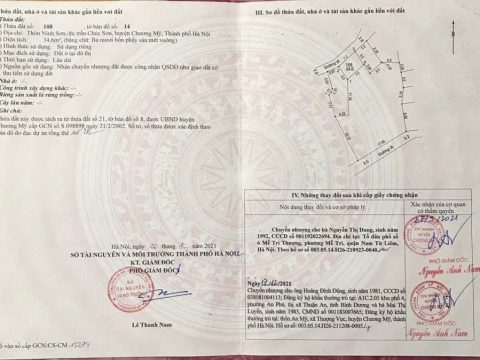 Thửa đất, nhà ở và tài sản khác gắn liền với đất
Thửa đất:
Thửa đất số: 108 , tờ bản đồ số: 14
Địa chỉ: Thôn Ninh Sơn, thị trấn Chúc Sơn, huyện Chương Mỹ, Thành phố Hà Nội
Diện tích: 34,6m², (bằng chữ: Ba mươi bốn phẩy sáu mét vuông)
Hình thức sử dụng: Sử dụng riêng
Mục đích sử dụng: Đất ở tại đô thị
Thời hạn sử dụng: Lâu dài
Nguồn gốc sử dụng: Nhận chuyển nhượng đất được công nhận QSDĐ như giao đất có
thu tiền sử dụng đất
Nhà ở: -/-
Công trình xây dựng khác: -/-
Rừng sản xuất là rừng trồng: -/-
Cây lâu năm: -/-
Ghi chú:
Thửa đất này được tách ra từ thửa đất số 21, tờ bản đồ số 8, được UBND huyện
Chương Mỹ cấp GCN số S 098898 ngày 21/2/2002. Số tờ, số thửa được xác định theo
bản đồ đo đạc dự án tổng thể
Hà Nội, ngày 22 tháng 2021
SỞ TÀI NGUYÊN VÀ MÔI TRƯỜNG THÀNH PHỐ HÀ NỘI
KT. GIÁM ĐỐC
PHÓ GIÁM ĐỐC
Lê Thanh Nam
Số vào sổ cấp GCN:CS-CM
III. Sơ đồ thửa đất, nhà ở và tài sản khác gắn liền với đất
Đường đi
Đường đi
IV. Những thay đổi sau khi cấp giấy chứng nhận
Nội dung thay đổi và cơ sở pháp lý
Xác nhận của cơ quan
có thẩm quyền
Chuyển nhượng cho bà Nguyễn Thị Dung, sinh năm
1992, CCCD số 001192022694. Địa chỉ tại: Tổ dân phố số
6 Mễ Trì Thượng, phường Mễ Trì, quận Nam Từ Liêm,
Hà Nội. Theo hồ sơ số 003.05.14.H26-210923-0040
PHÓ GIÁM ĐỐC
Nguyễn Anh Nam
Ngày 2021
Chuyển nhượng cho ông Hoàng Đình Dũng, sinh năm 1981, CCCD số
038081004113; Đăng ký hộ khẩu thường trú tại: A1C2.05 khu phố 4,
phường An Phú, thị xã Thuận An, tỉnh Bình Dương và bà Mai Thị
Luyến, sinh năm 1983, CMND số 001183007665; Đăng ký hộ khẩu
thường trú tại: thôn An Mỹ, xã Thượng Vực, huyện Chương Mỹ, thành
phố Hà Nội. Hồ sơ số: 003.05.14.H26-211208-0005
PHÓ GIÁM ĐỐC
Nguyễn Anh Nam